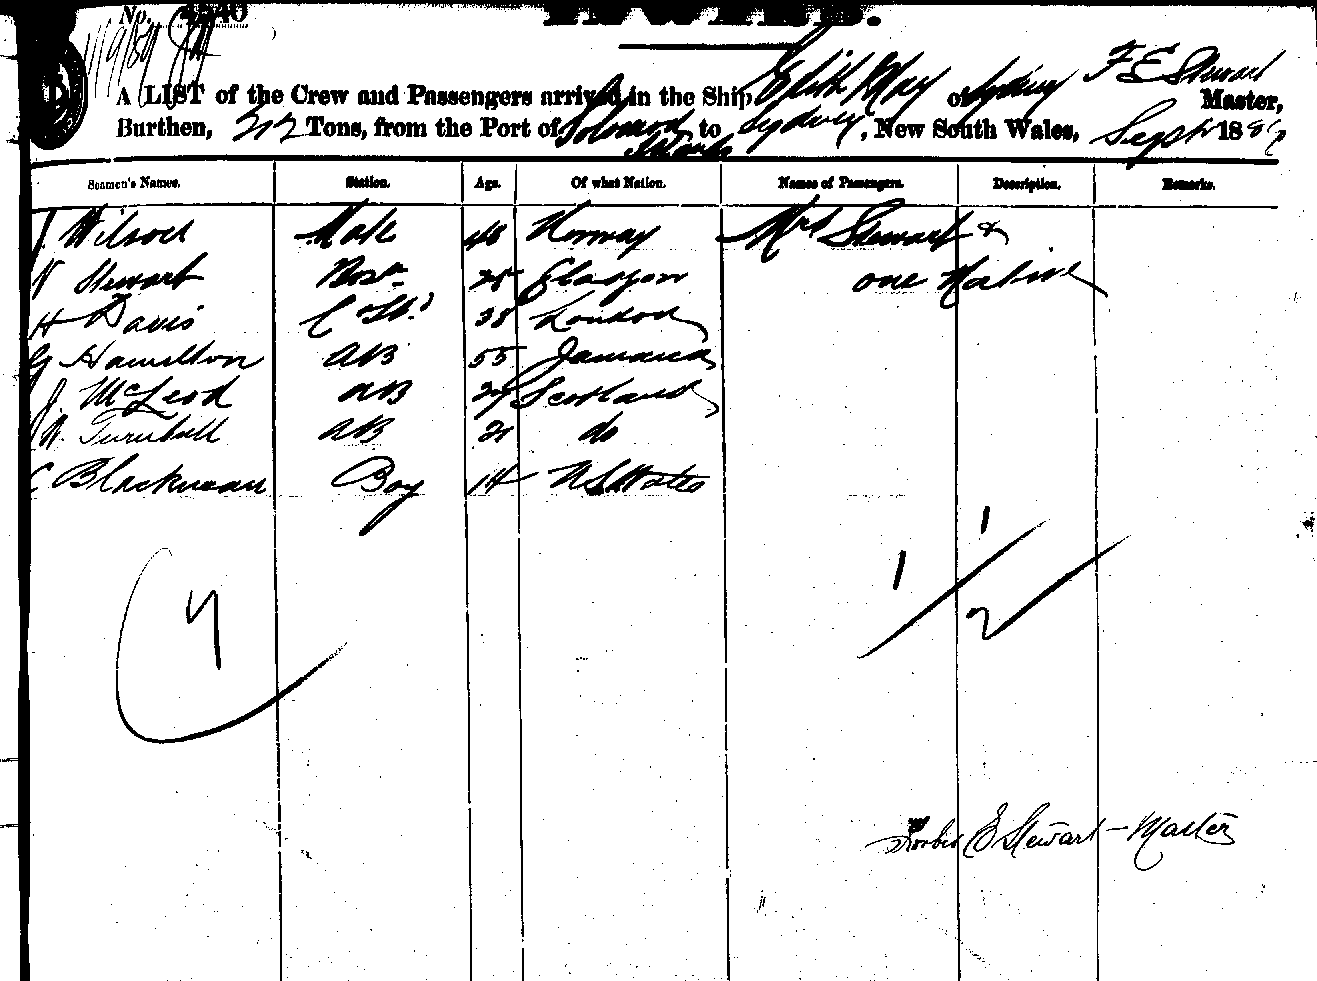 No. 4540
11/9/84
INWARD.
A LIST of the Crew and Passengers arrived in the Ship Edith May of Sydney F E Stewart Master,
Burthen, 212 Tons, from the Port of Solomon Islands to Sydney, New South Wales, Septr 188
Seamen's Names. Station. Age. Of what Nation. Names of Passengers. Description. Remarks.
J. Wilson Mate 48 Norway Mrs Stewart &
N Stewart Bosn 25 Glasgow one Native
H Davis C & St. 38 London
G Hamilton AB 55 Jamaica
J. McLeod AB 27 Scotland
W. Turnbull AB 21 do
C Blackman Boy 14 N S Wales
1
1
7
2
Forbes E Stewart - Master